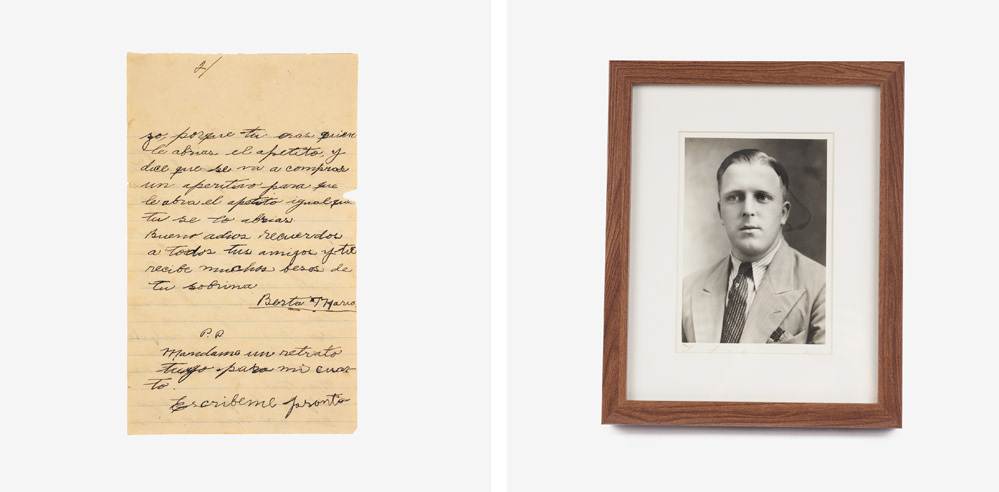 2/
yo, porque tu eras quien
le abrias el apetito, y
dice que se va a comprar
un aperitivo para que
le abra el apetito igual que
tu se lo abrias
Bueno adios recuerdos
a todos tus amigos y tu
recibe muchos besos de
tu sobrina
Berta Maria
P.D
Mandame un retrato
tuyo para mi cuar-
to.
Escribeme pronto